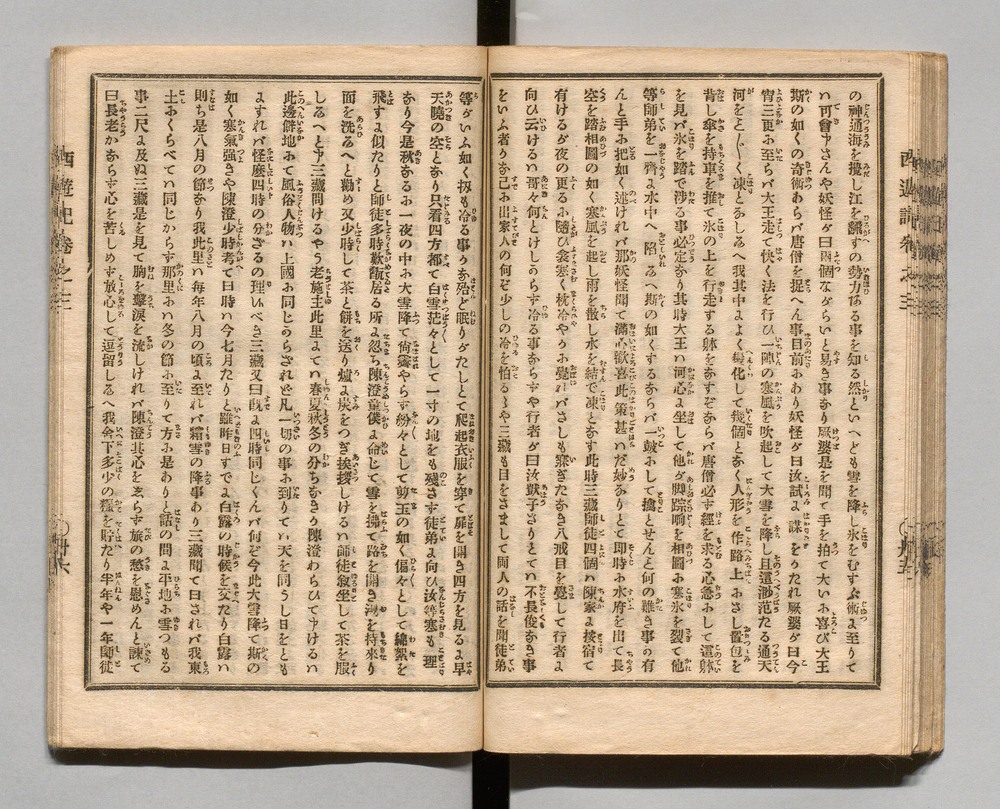 の神通海を攪し江を飜すの勢力ある事を知る然といへども雪を降し氷をむすぶ術よ至りて
ハ可會申さんや妖怪が曰兩個ながらいと易き事なり厥婆是を聞て手を拍て大いお喜び大王
斯の如くの奇術あらバ唐僧を捉へん事目前おあり妖怪が曰汝試よ謀をかたれ厥婆が曰今
宵三更お至らバ大王走て快く法を行ひ一陣の寒風を吹起して大雪を降し且還渺茫たる通天
河をとく〳〵凍とあしゐへ我其中よよく變化して幾個となく人形を作路上おさし置包を
背し傘を持車を推て氷の上を行走する躰をあすあらバ唐僧必ず經を求る心急おして這躰
を見バ氷を踏で渉る事必定なり其時大王ハ河心よ坐して他が脚踪响を相圖お寒氷を裂て他
等師弟を一齊よ水中へ陷ゐへ斯の如くするあらバ一皷おして擒とせんと何の難き事の有
んと手お把如く述けれバ那妖怪聞て滿心歡喜此策甚いだ妙ありとて即時お水府を出て長
空を踏相圖の如く寒風を起し雨を散し水を結で凍とあす此時三藏師徒四個ハ陳家よ按宿て
有けるが夜の更るお隨ひ衾寒く枕冷やうお覺けれバさしも寐ぎたあき八戒目を覺して行者よ
向ひ云けるハ哥々何とけしからず冷る事あらずや行者が曰汝獃子さりとてハ不長俊あき事
をいふ者うあ己お出家人の何ぞ少しの冷を怕るゝや三藏も目をさまして兩人の話を聞徒弟
等がいふ如く扨も冷る事うあ殆ど眠りがたしとて爬起衣服を穿て扉を開き四方を見るよ早
天曉の空とあり只看四方都て白雪茫々として一寸の地をも殘さず徒弟よ向ひ汝等寒も理
あり今是秋あるお一夜の中お大雪降て尚霽やらず紛々として剪玉の如く偏々として綿絮を
飛すよ似たりと師徒多時歡翫居る所よ忽ち陳澄童僕よ命じて雪を掃て路を開き湯を持來り
面を洗ゐへと勸め又少時して茶と餅を送り爐よ炭をつぎ挨拶しけるハ師徒敘坐して茶を服
しゐへと申三藏問けるやう老施主此里よてハ春夏秋冬の分ちあきうり陳澄わらひて申けるハ
此邊僻地おて風俗人物ハ上國お同じからざれども凡一切の事お到りてハ天を同うし日をとも
よすれバ怪麽四時の分ざるの理いべき三藏又曰既よ四時同じくんバ何ぞ今此大雪降て斯の
如く寒氣強きや陳澄少時考て曰時ハ今七月たりと雖昨日すでよ白露の時候を交たり白露ハ
則ち是八月の節なり我此里ハ每年八月の頃よ至れバ霜雪の降事あり三藏聞て曰されバ我東
土おくらべてハ同じからず那里おハ冬の節お至りて方お是ありと話の間よ平地お雪つもる
事二尺よ及ぬ三藏是を見て胸を鼕涙を流しけれバ陳澄其心をゑらず旅の愁を慰めんと諫て
曰長老かあらず心を苦しめず放心して逗留しゐへ我舍下多少の糧を貯たり半年や一年師徒
西遊記卷之三
丹六